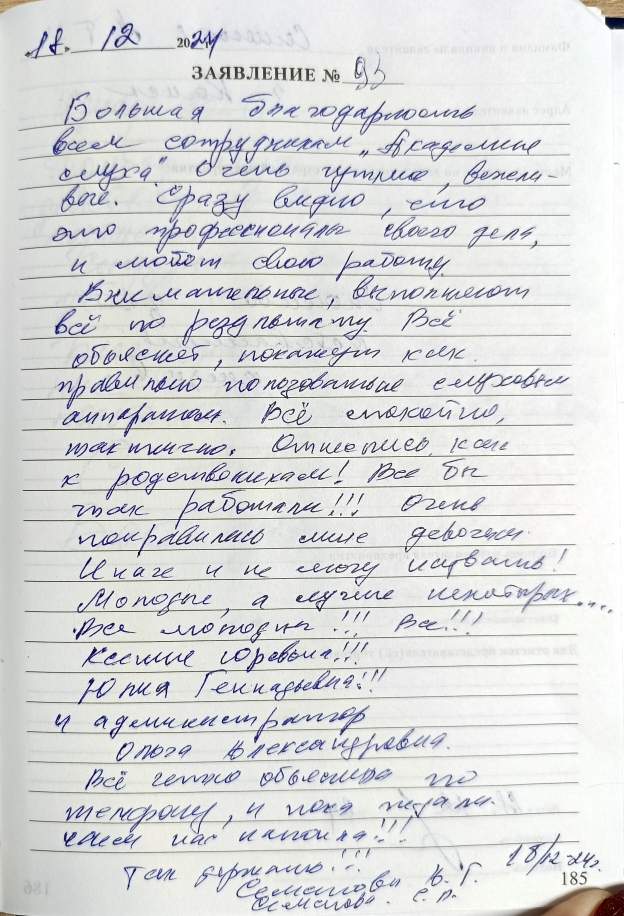 "18" 12 2024
ЗАЯВЛЕНИЕ № 93
Большая благодарность
всем сотрудникам „Академие
слуха". Очень чуткие, вежли-
вые. Сразу видно, что
это профессионалы своего дела,
и любят свою работу
Внимательные, выполняют
всё по результату. Всё
объяснят, покажут как
правильно пользование слуховым
аппаратом. Всё спокойно,
тактично. Отнеслись, как
к родственникам! Все бы
так работали!!! Очень
понравились мне девочки.
Иначе и не могу назвать!
Молодые, а лучше некоторых....
Все молодцы!!! Все!!!
Ксения Юрьевна!!!
Юлия Геннадьевна!!!
и администратор
Ольга Александровна.
Всё четко объяснила по
телефону, и пока ждали
чаем нас напоила!!!
Так держать!!!
18/12-24г.
185